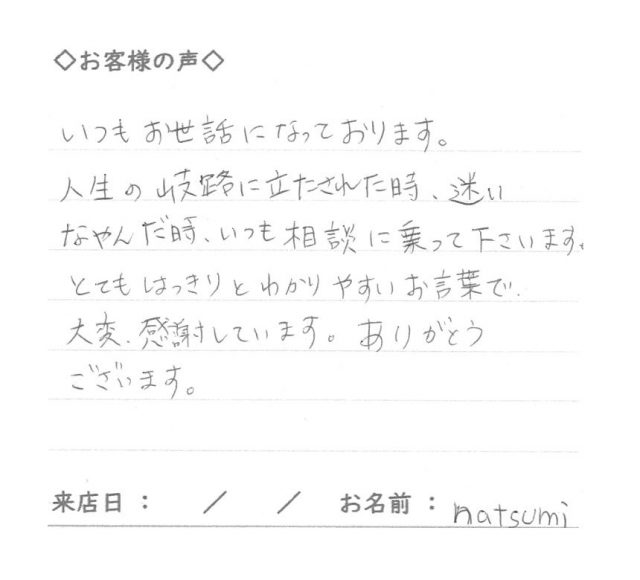 ◇お客様の声◇
いつもお世話になっております。
人生の岐路に立たされた時、迷い
なやんだ時、いつも相談に乗って下さいます。
とてもはっきりとわかりやすいお言葉で、
大変、感謝しています。ありがとう
ございます。
来店日： ／ ／ お名前：natsumi